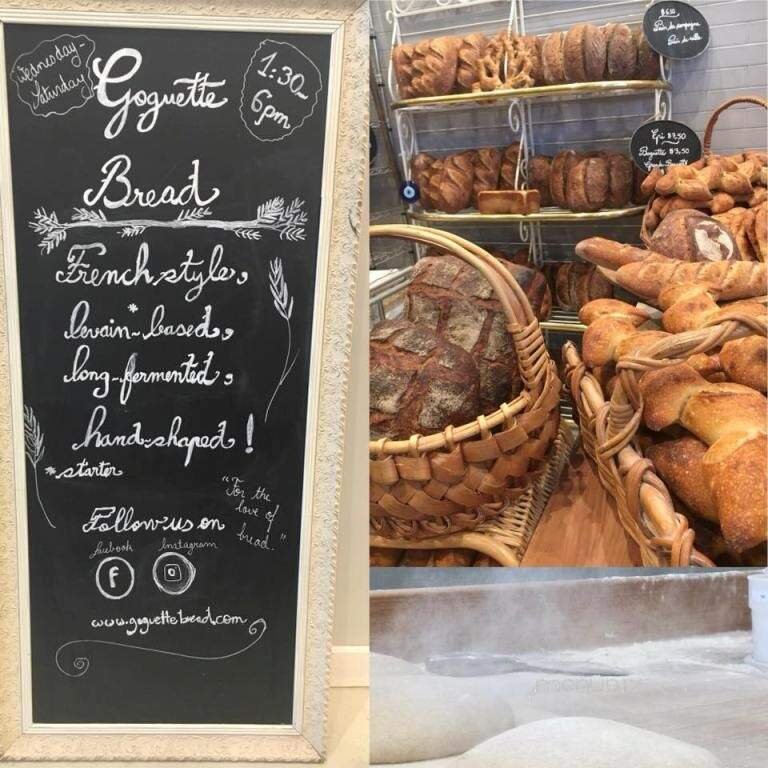 Wednesday-
Saturday
Goguette
1:30-
6pm
Bread
French style,
levain*-based,
long-fermented,
hand-shaped!
*starter
"For the
love of
bread."
Follow us on
facebook
Instagram
f
www.goguettebread.com
Pain de campagne
Pain de mile
Epi $3.50
Baguette $3.50